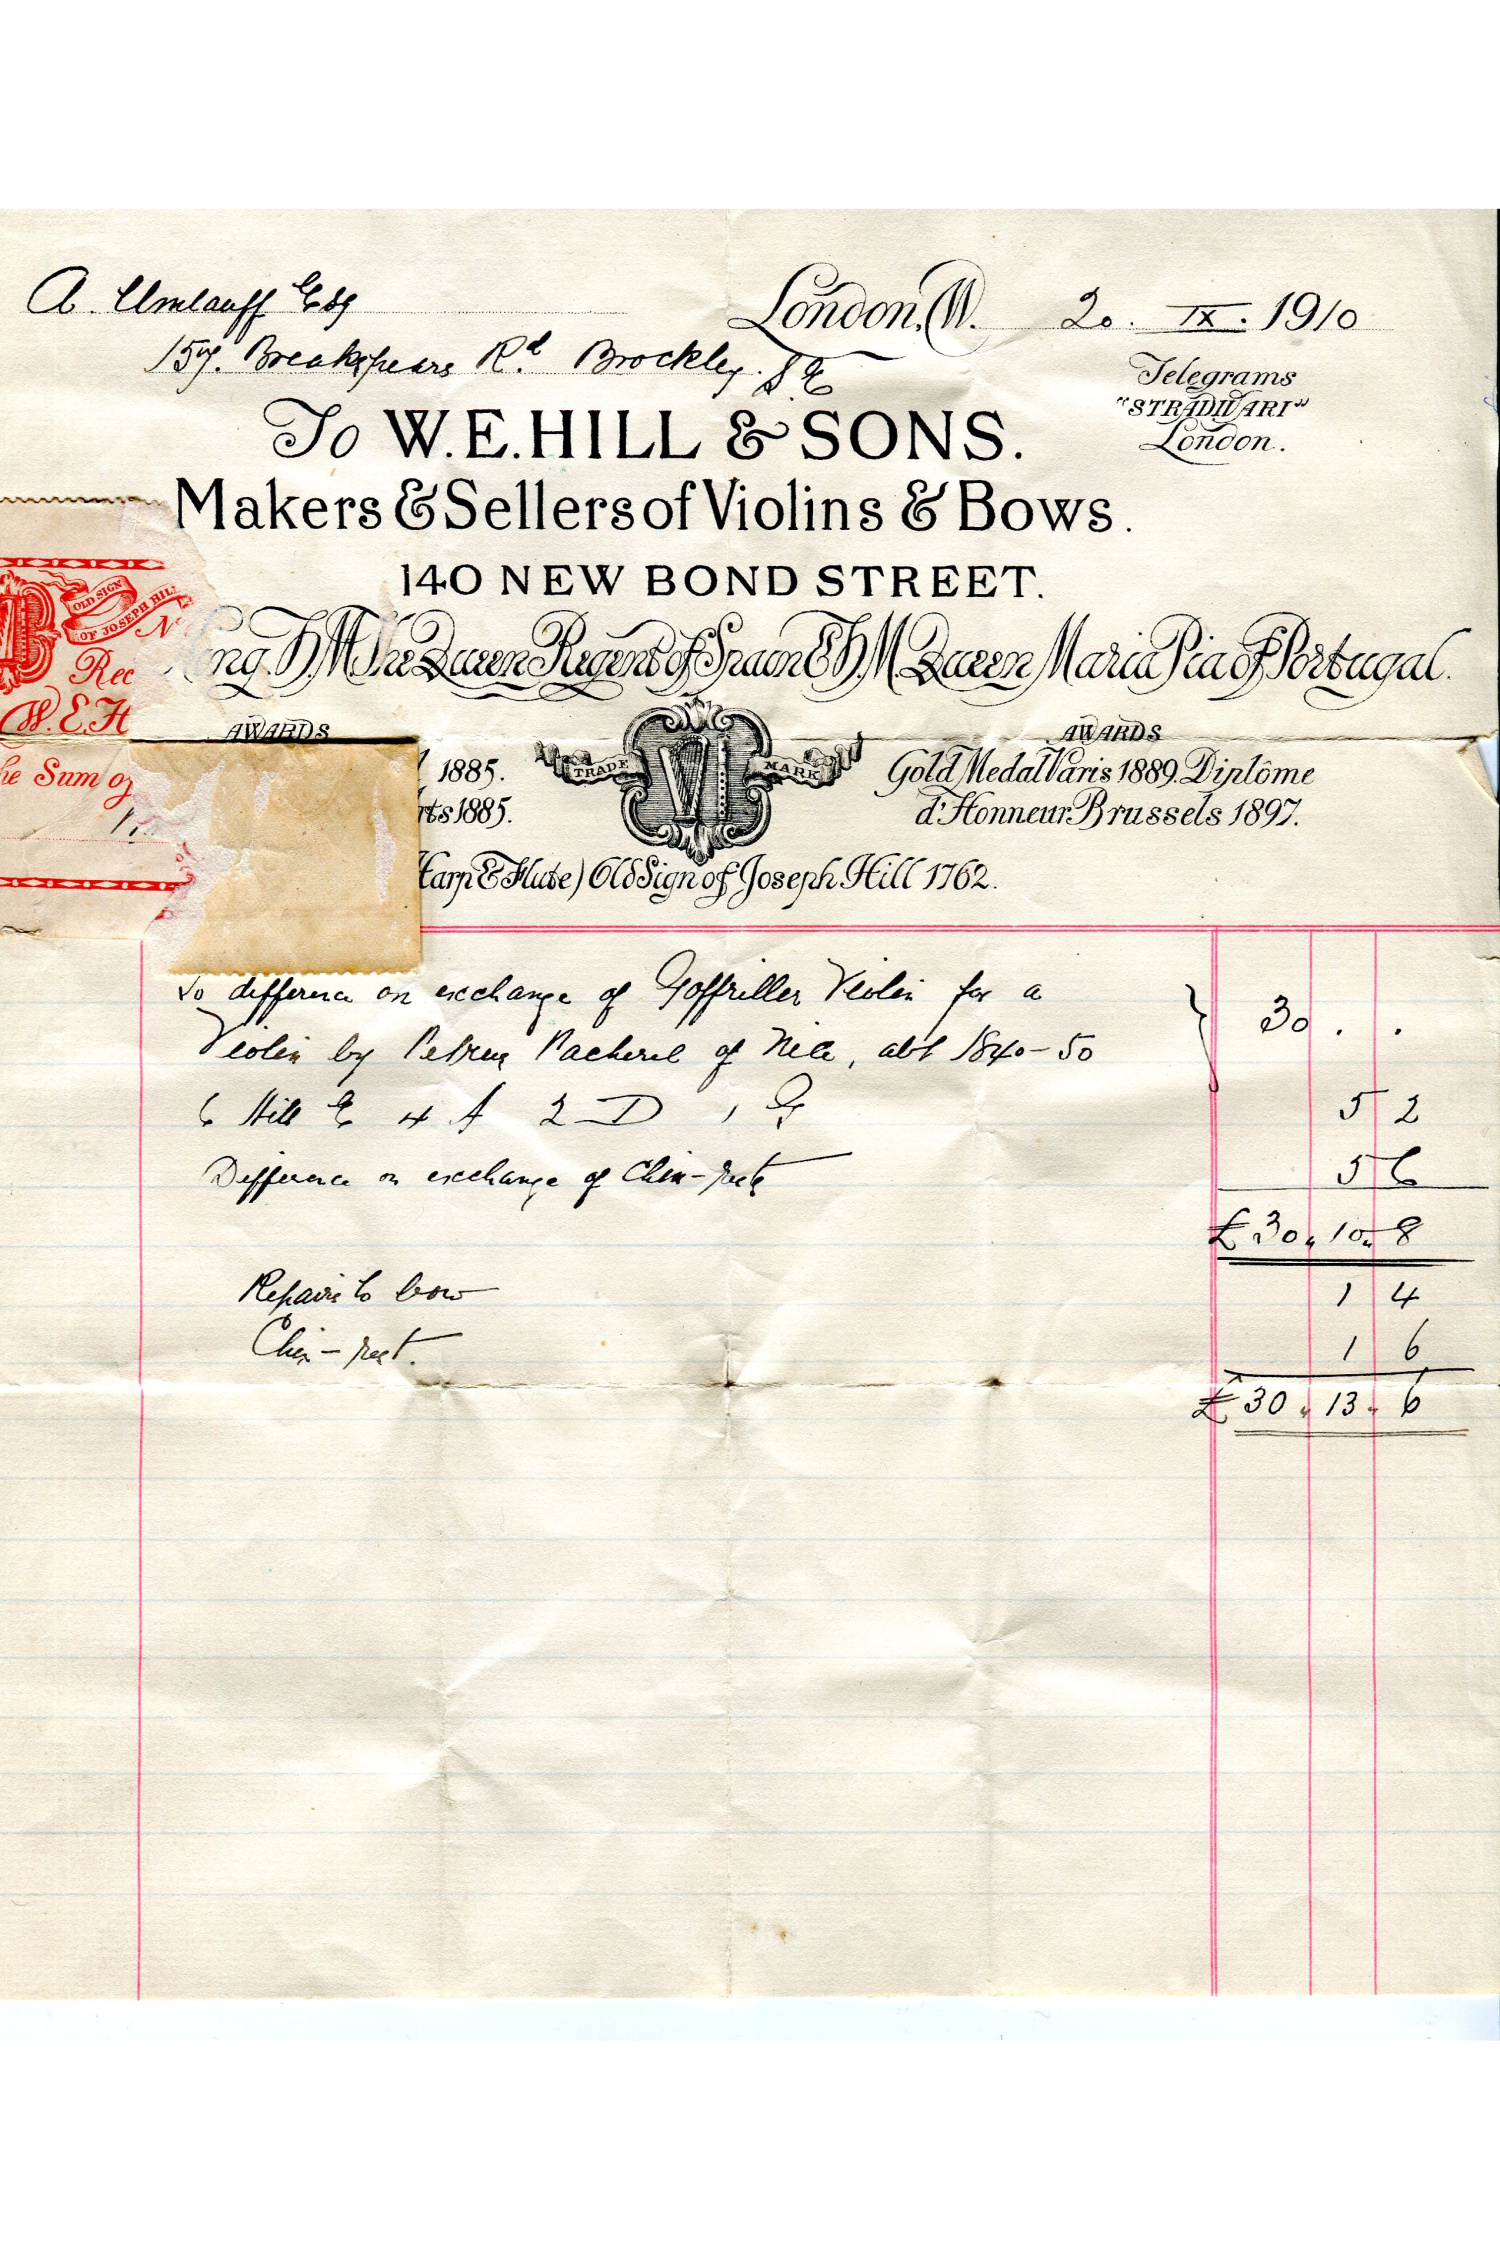 A. Umlauff Esq
London, W. 20. IX. 1910
157. Breakspears Rd. Brockley. S E
Telegrams
"STRADIVARI"
London.
To W.E.HILL & SONS.
Makers & Sellers of Violins & Bows.
140 NEW BOND STREET.
OLD SIGN
OF JOSEPH HILL
Rec
W.E.H
he Sum of
ng. H.M. the Queen Regent of Spain & H.M. Queen Maria Pia of Portugal.
AWARDS
1885.
rts 1885.
TRADE MARK
AWARDS
Gold Medal Paris 1889. Diplôme
d'Honneur Brussels 1897.
Harp & Flute) Old Sign of Joseph Hill 1762.
To difference on exchange of Goffriller Violin for a
Violin by Petrus Pacherel of Nice, abt 1840-50 30 . .
6 Hill E 4 A 2 D 1 G 5 2
Difference on exchange of Chin-rests 5 6
£ 30 , 10 , 8
Repairs to bow 1 4
Chin-rest. 1 6
£ 30 , 13 , 6